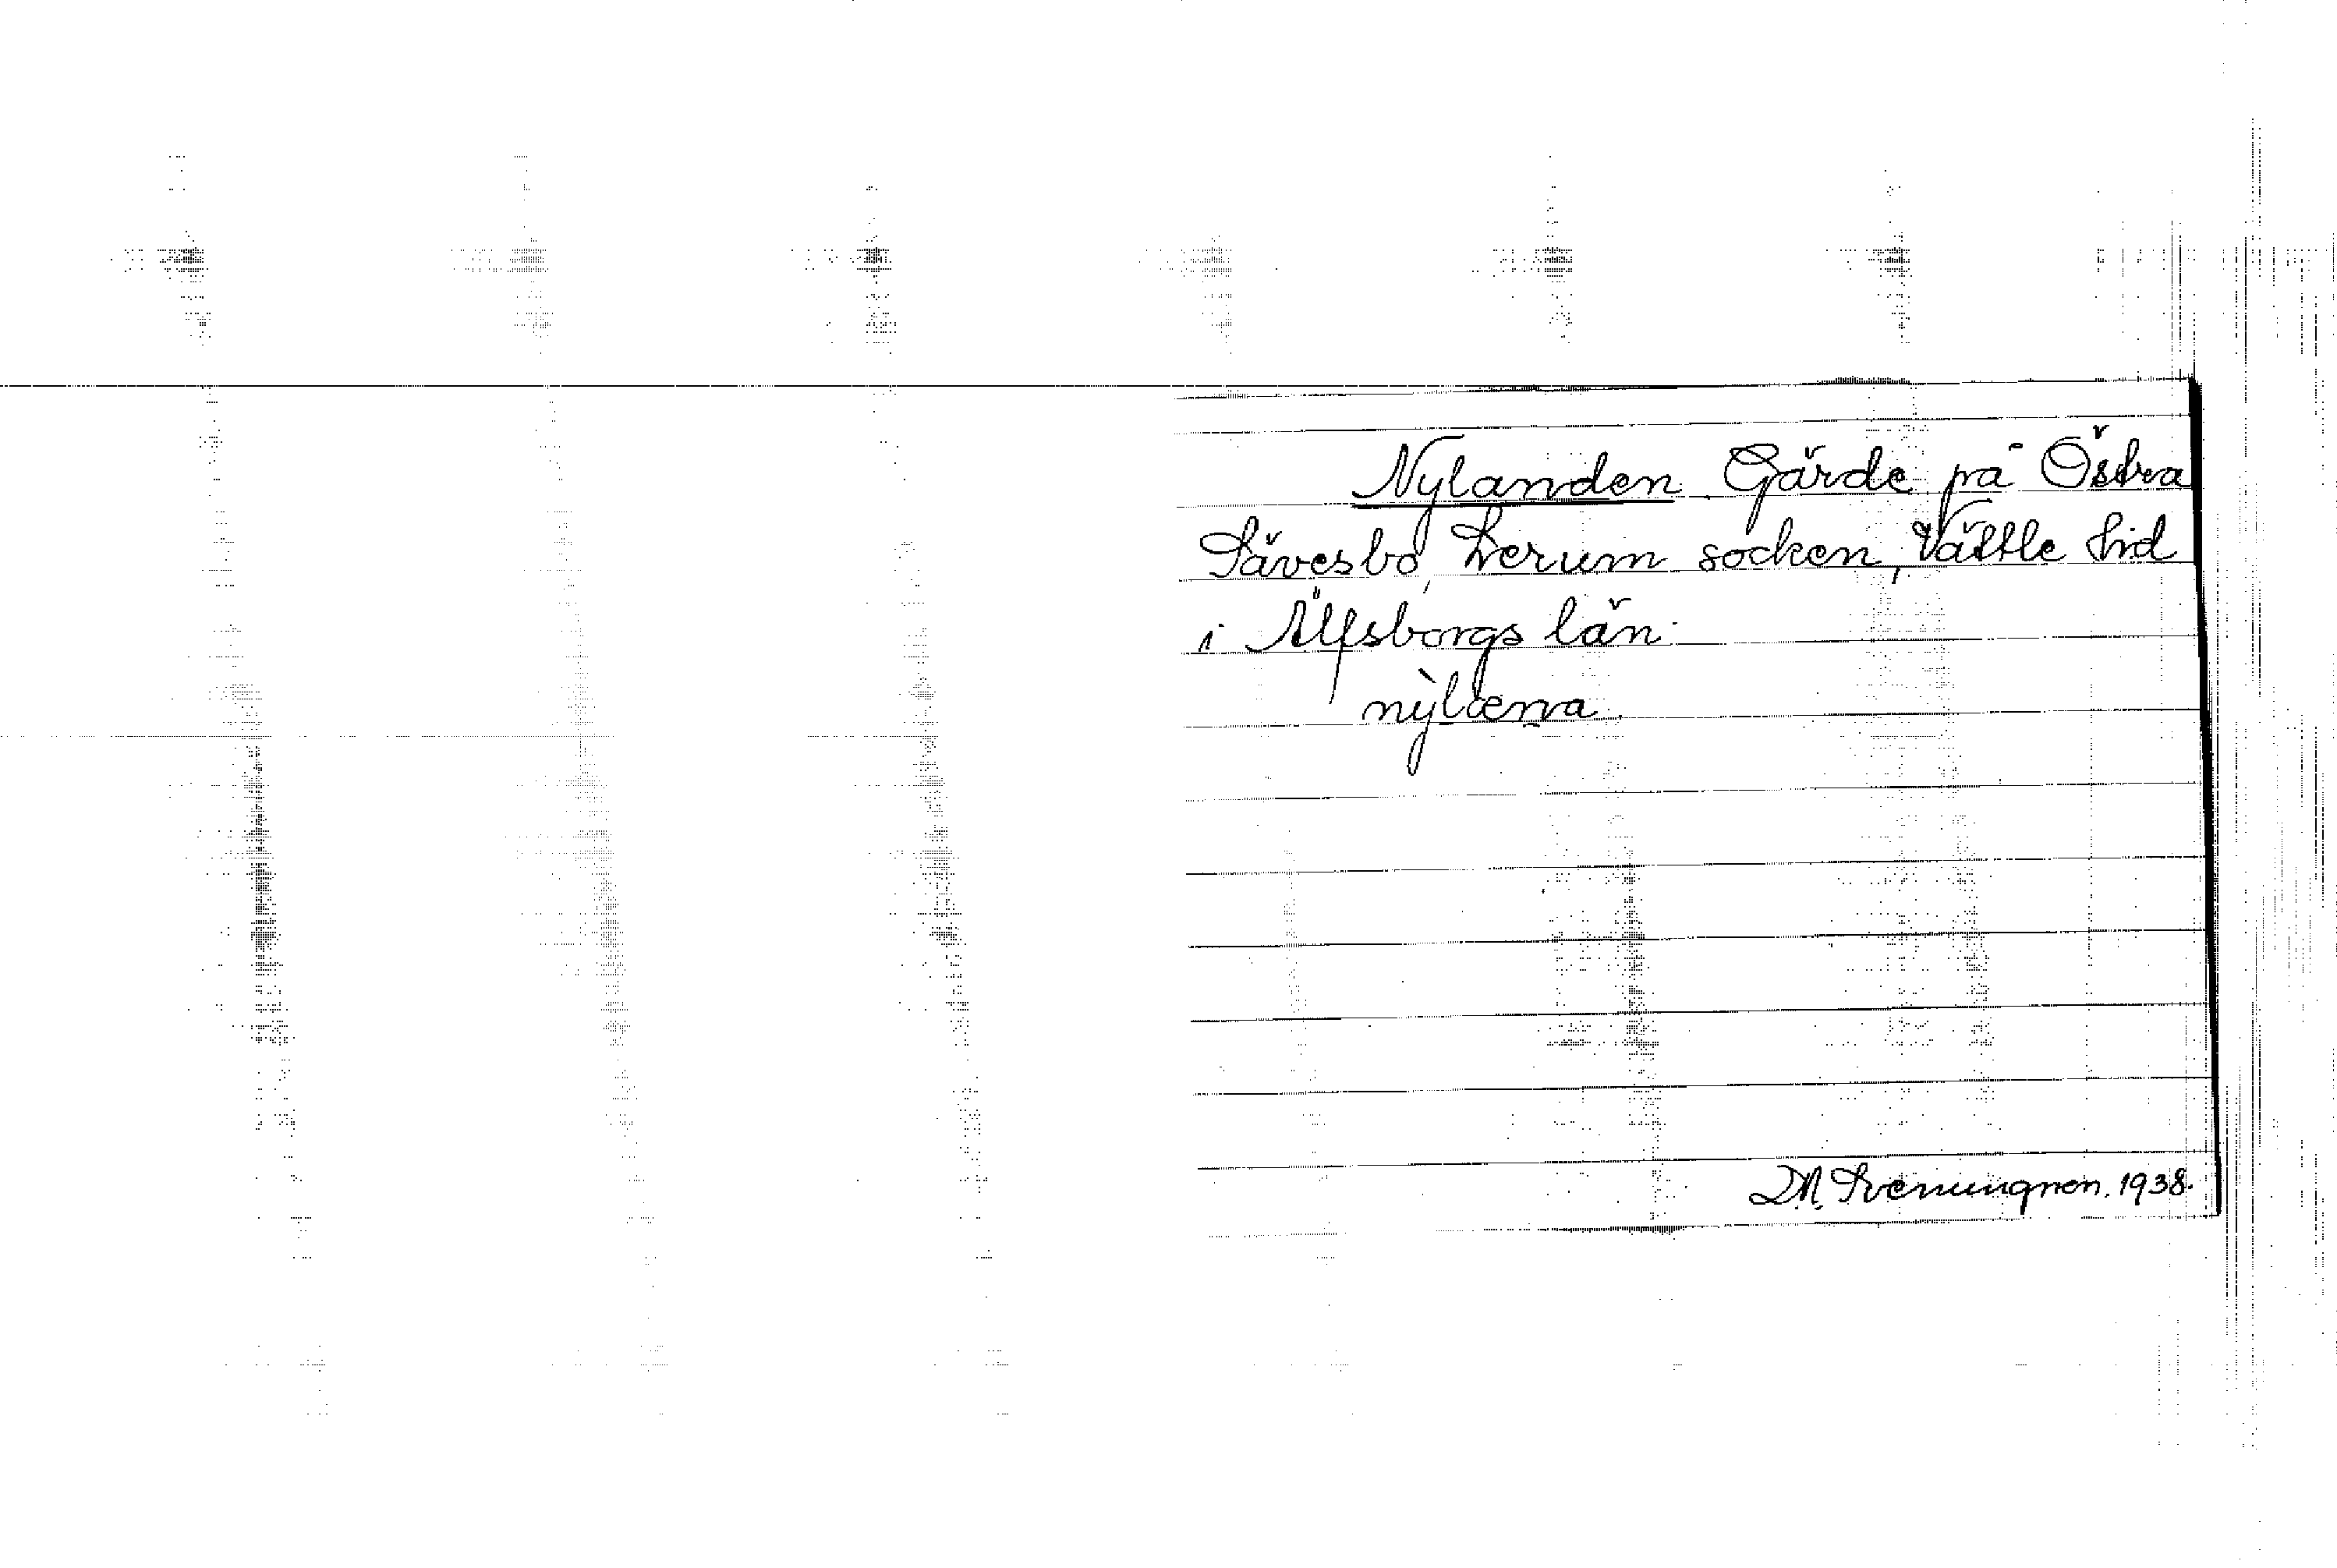 Nylanden Gärde på Östra
Sävesbo, Lerum socken, Vättle hd
i Älfsborgs län.
D.M. Svenungson. 1938.